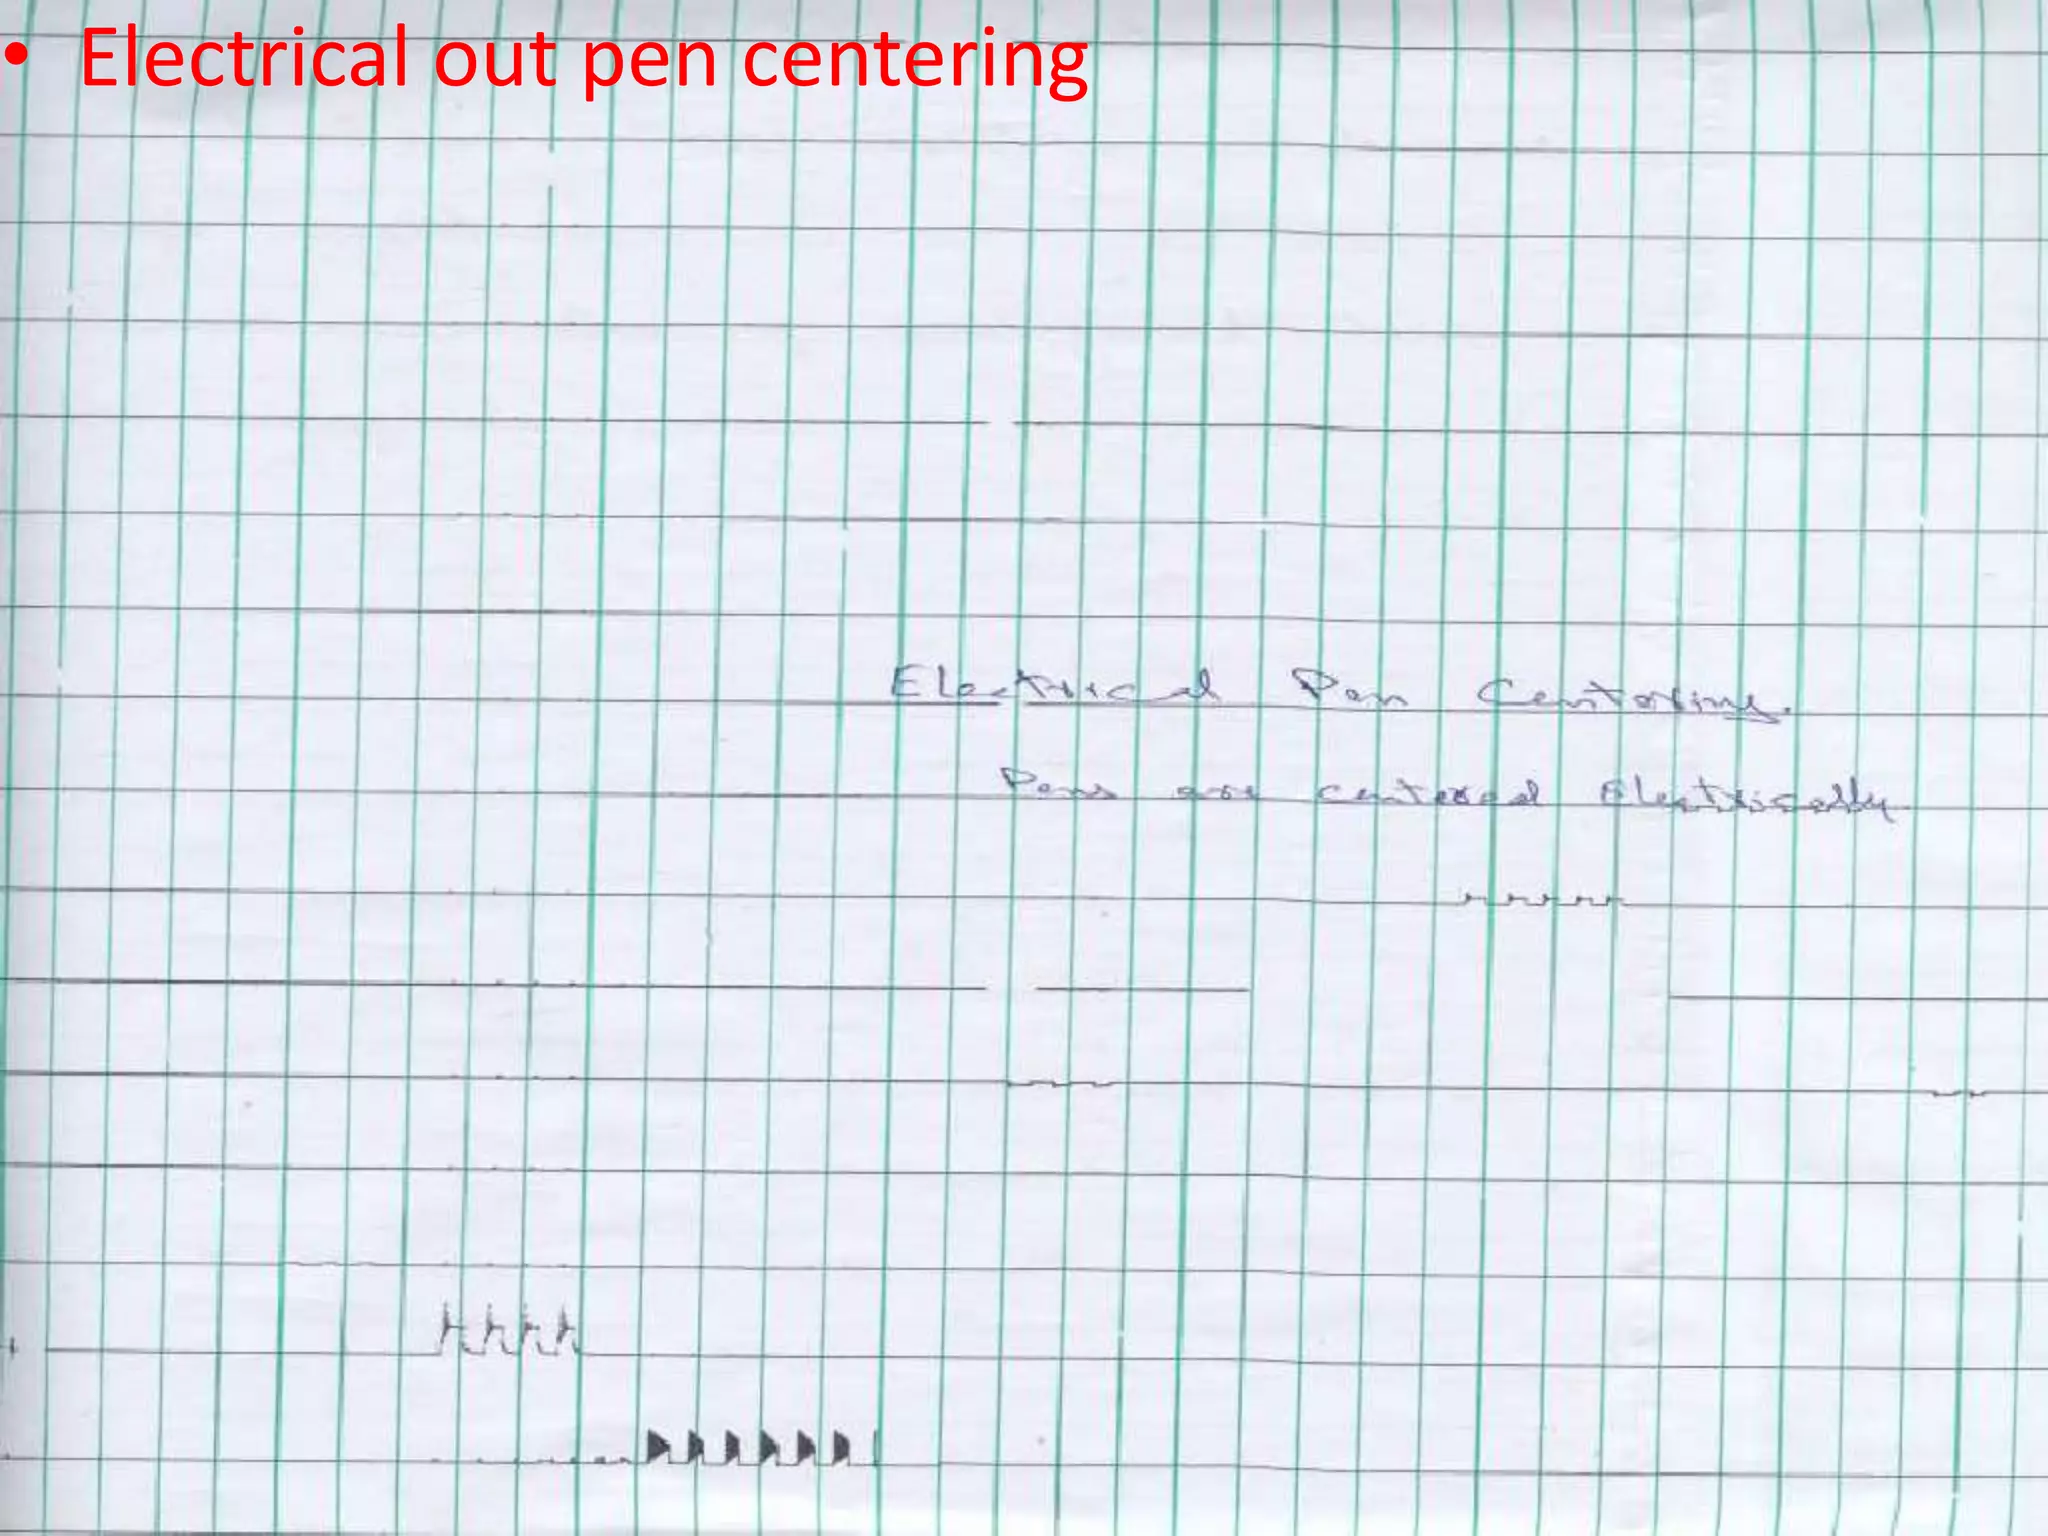 • Electrical out pen centering
Electrical Pen Centering.
Pens are centered Electrically